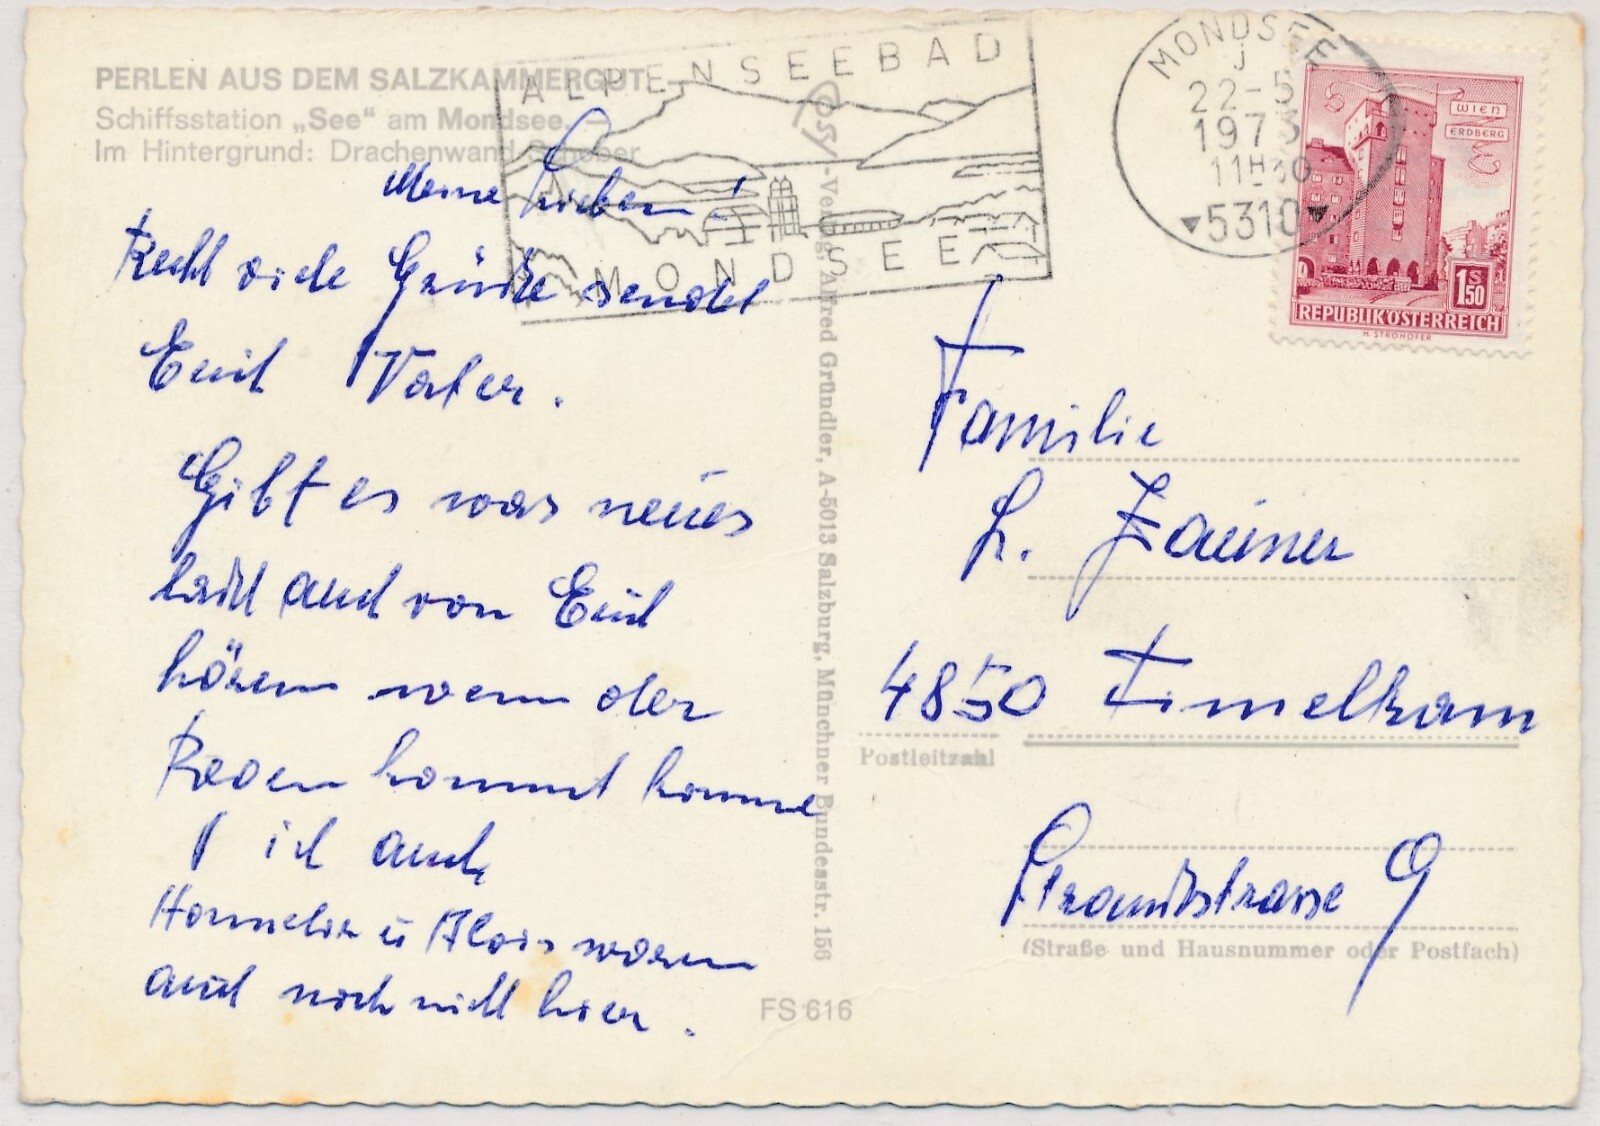 PERLEN AUS DEM SALZKAMMERGUT
Schiffsstation „See“ am Mondsee. –
Im Hintergrund: Drachenwand Schober
ALPENSEEBAD
MONDSEE
MONDSEE
J
22-5
1973
11H30
5310
WIEN
ERDBERG
1S50
REPUBLIK ÖSTERREICH
H. STROHOFER
Meine Lieben!
Recht viele Grüße sendet
Euch Vater.
Gibt es was neues
laßt auch von Euch
hören wenn der
Regen kommt komme
ich auch
Hannelore u Alois waren
auch noch nicht hier.
Cosy-Verlag, Alfred Gründler, A-5013 Salzburg, Münchner Bundesstr. 156
Familie
L. Zauner
4850 Timelkam
Postleitzahl
9
(Straße und Hausnummer oder Postfach)
FS 616